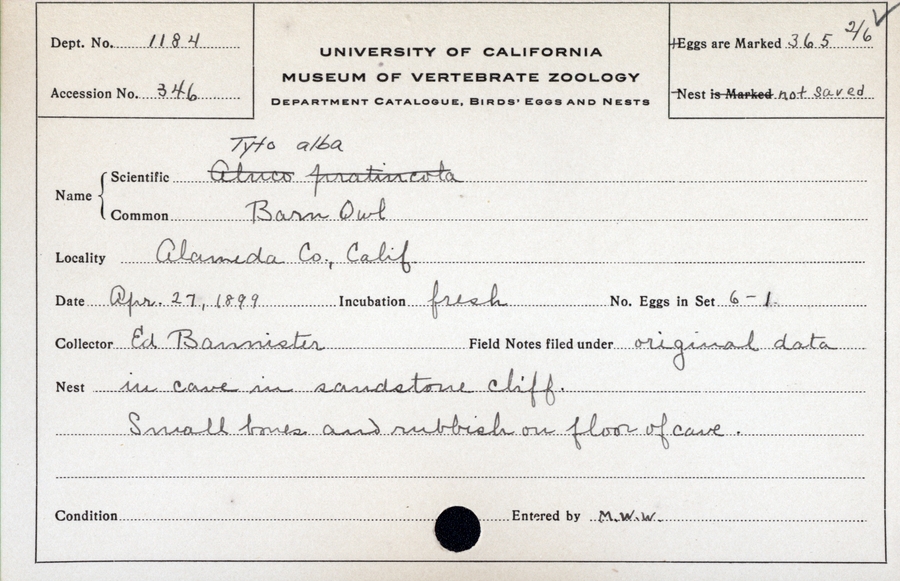 Dept. No. 1184
Accession No. 346
UNIVERSITY OF CALIFORNIA
MUSEUM OF VERTEBRATE ZOOLOGY
DEPARTMENT CATALOGUE, BIRDS' EGGS AND NESTS
Eggs are Marked 365 2/6
Nest is Marked not saved
Tyto alba
Name Scientific Aluco pratincola
Common Barn Owl
Locality Alameda Co., Calif
Date Apr. 27, 1899 Incubation fresh No. Eggs in Set 6-1
Collector Ed Bannister Field Notes filed under original data
Nest in cave in sandstone cliff.
Small bones and rubbish on floor of cave.
Condition Entered by M.W.W.